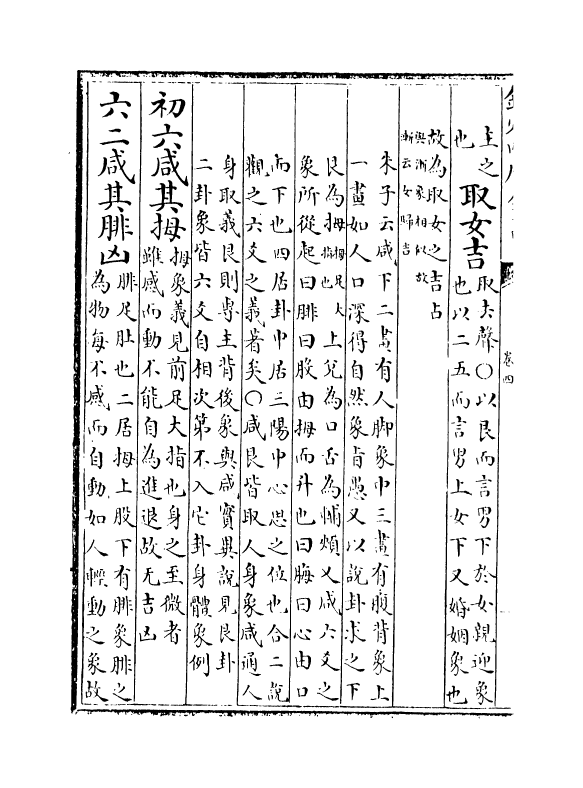 卷四
主之
也
取女吉
取去聲○以艮而言男下於女親迎象
也以二五而言男上女下又婚姻象也
故為取女之吉占
與漸彖相似故
漸云女歸吉
朱子云咸下二畫有人脚象中三畫有腹背象上
一畫如人口深得自然象旨愚又以說卦求之下
艮為拇拇足大指也上兌為口舌為輔頰又咸六爻之
象所從起曰腓曰股由拇而升也曰脢曰心由口
而下也四居卦中居三陽中心思之位也合二說
觀之六爻之義著矣○咸艮皆取人身象咸通人
身取義艮則專主背後象與咸實異說見艮卦
二卦象皆六爻自相次第不入它卦身體象例
初六咸其拇
拇象義見前足大指也身之至微者
雖感而動不能自為進退故无吉凶
六二咸其腓凶
腓足肚也二居拇上股下有腓象腓之
為物每不感而自動如人輕動之象故